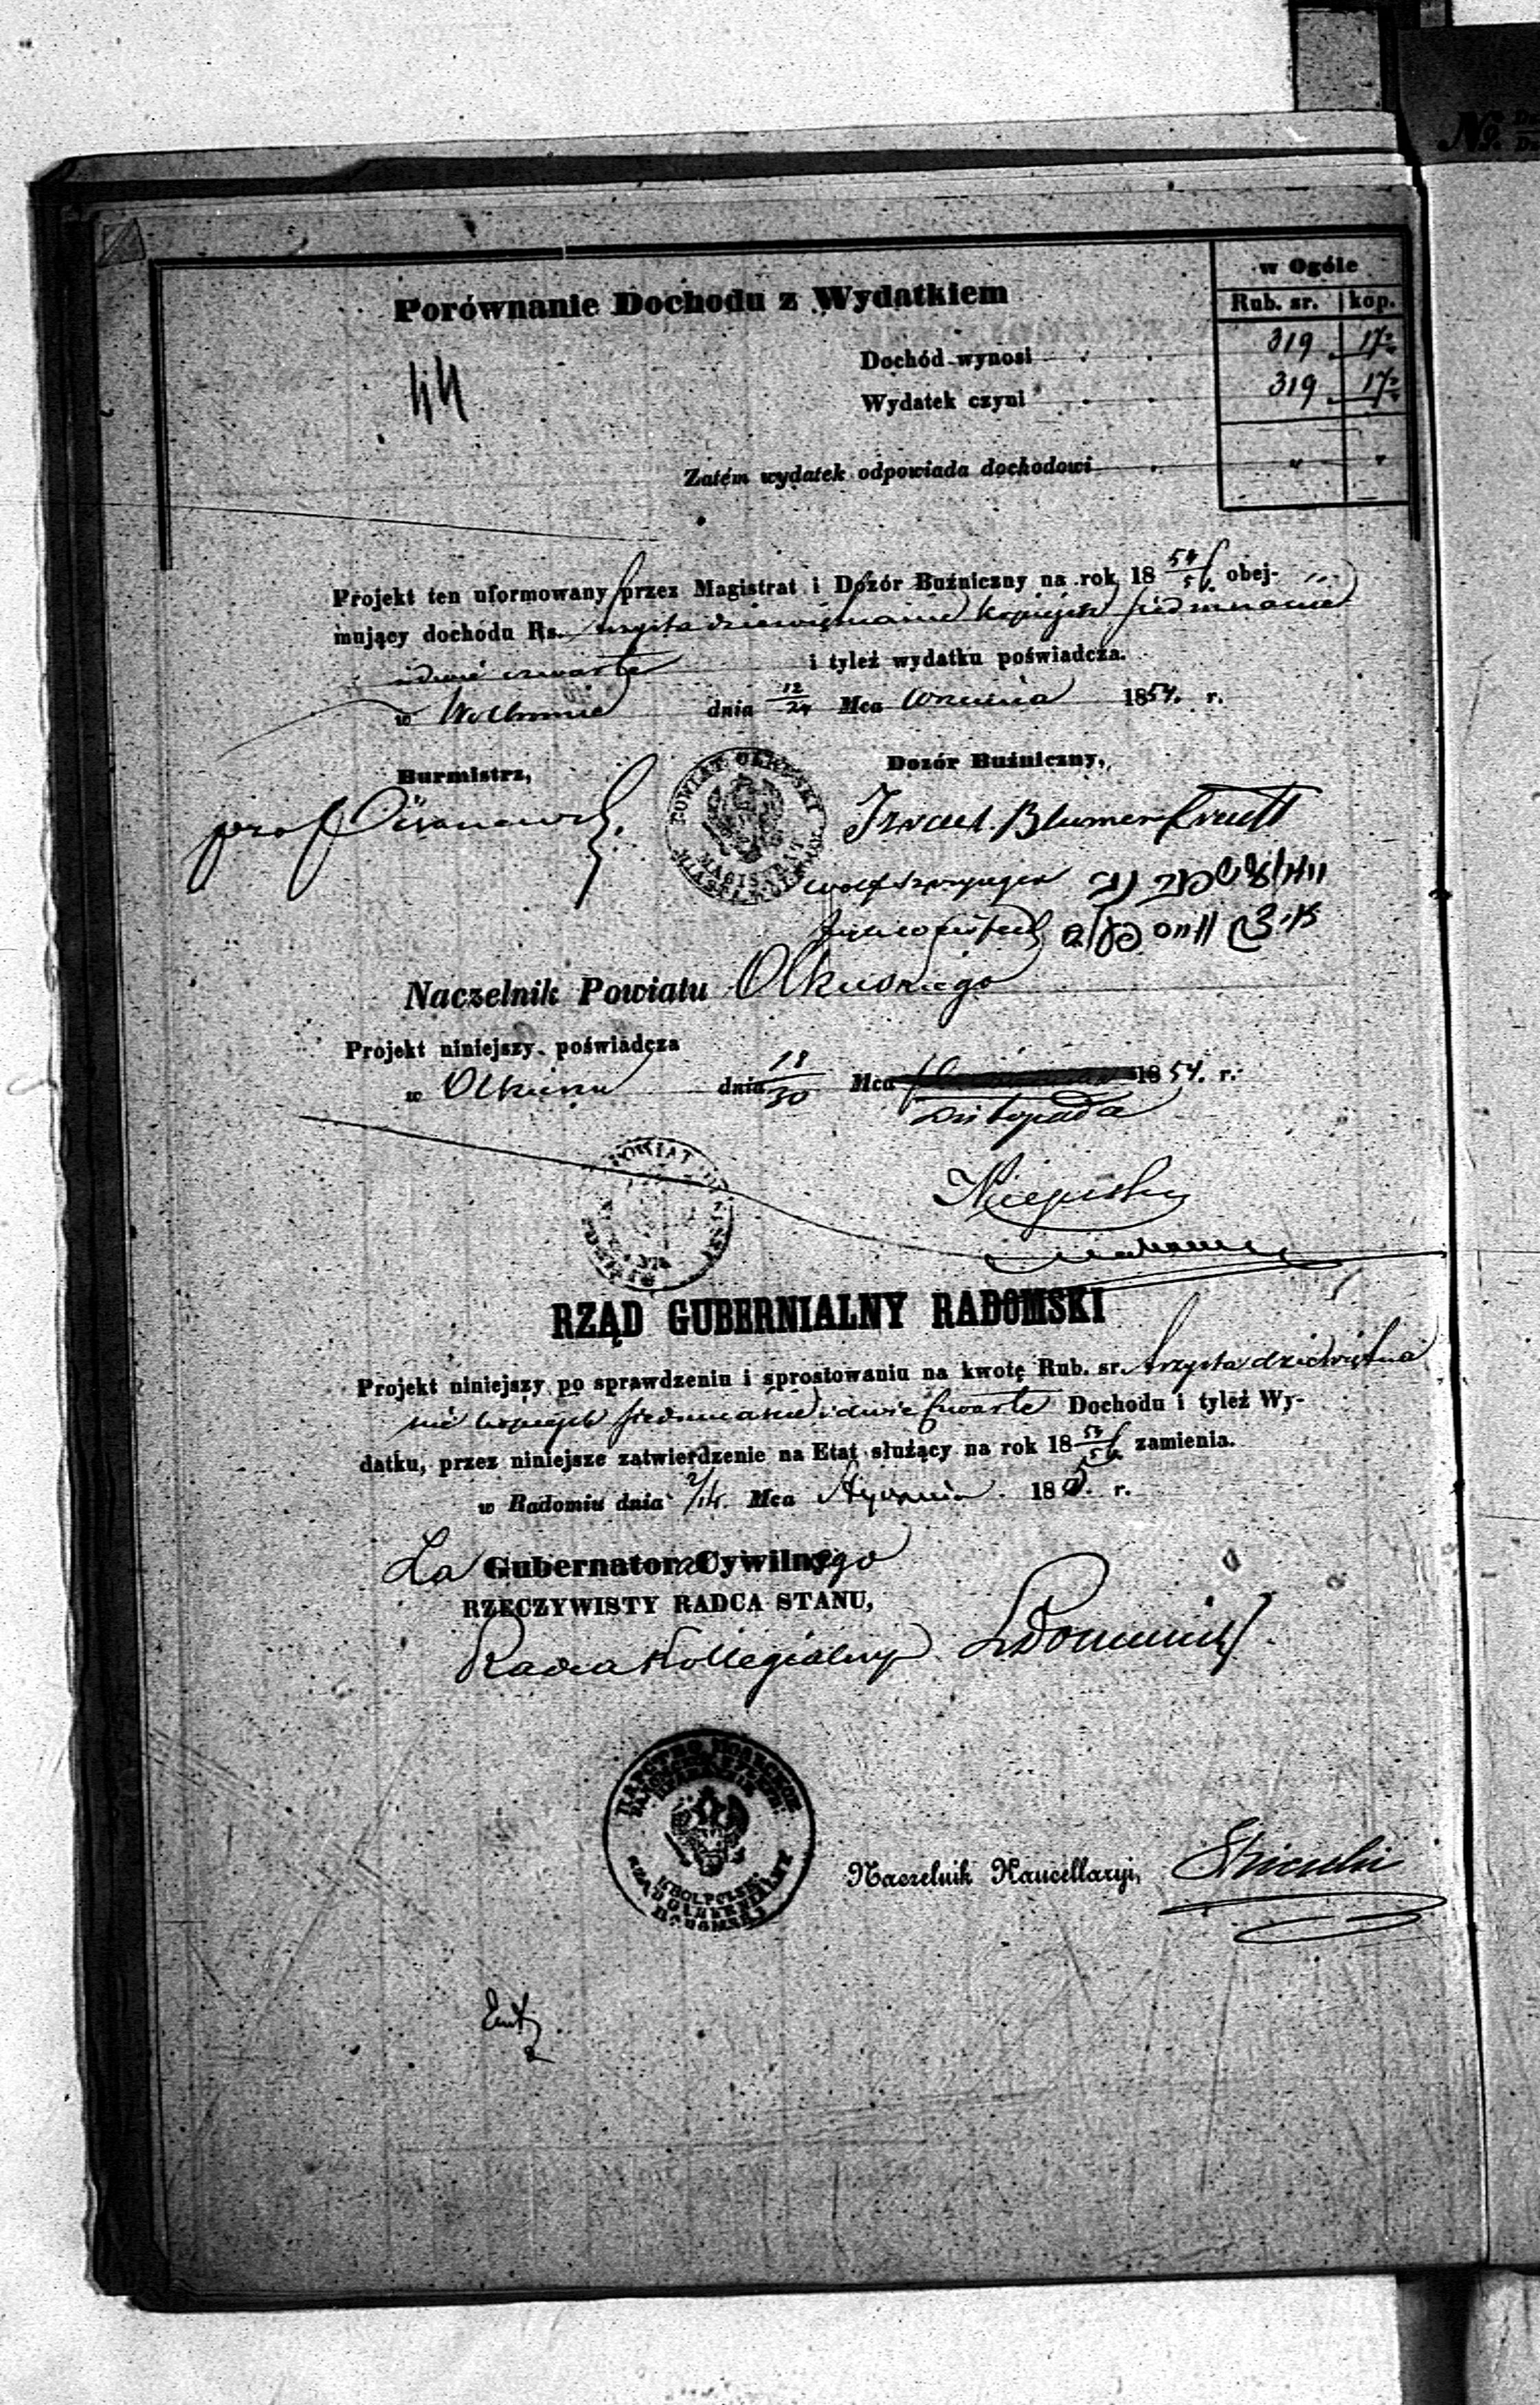 w Ogóle
Porównanie Dochodu z Wydatkiem
Rub. sr. kop.
Dochód wynosi 319 17 2/4
44
Wydatek czyni 319 17 2/4
Zatém wydatek odpowiada dochodowi " "
Projekt ten uformowany przez Magistrat i Dozór Buźniczny na rok 18 54/56 obej-
mujący dochodu Rs. trzysta dziewiętnaście kopiejek siedmnaście
i dwie czwarte i tyleż wydatku poświadcza.
w Wolbromie dnia 12/24 Mca Września 1854. r.
Burmistrz,
Dozór Buźniczny,
POWIAT OLKUSKI
MAGISTRAT
Izrael Blumenfrucht
Wolf Szprynger
Naczelnik Powiatu Olkuskiego
Projekt niniejszy poświadcza
w Olkuszu dnia 18/30 Mca 1854. r.
Listopada
POWIAT
RZĄD GUBERNIALNY RADOMSKI
Projekt niniejszy po sprawdzeniu i sprostowaniu na kwotę Rub. sr. trzysta dziewiętna
ście kopiejek siedmnaście i dwie czwarte Dochodu i tyleż Wy-
datku, przez niniejsze zatwierdzenie na Etat służący na rok 18 54/56 zamienia.
w Radomiu dnia 2/14. Mca Stycznia 185. r.
Za Gubernatora Cywilnego
RZECZYWISTY RADCA STANU,
Radca Kollegialny
RZĄD GUBERNIALNY
RADOMSKI
Naczelnik Kancellaryi,